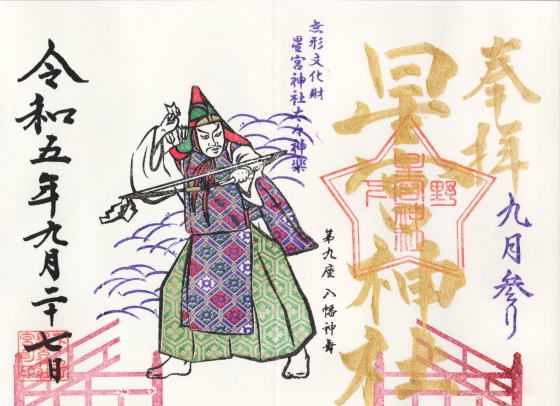 奉拝
九月参り
星宮神社
下野
星宮神社
無形文化財
星宮神社太々神楽
第九座 八幡神舞
令和五年九月二十七日